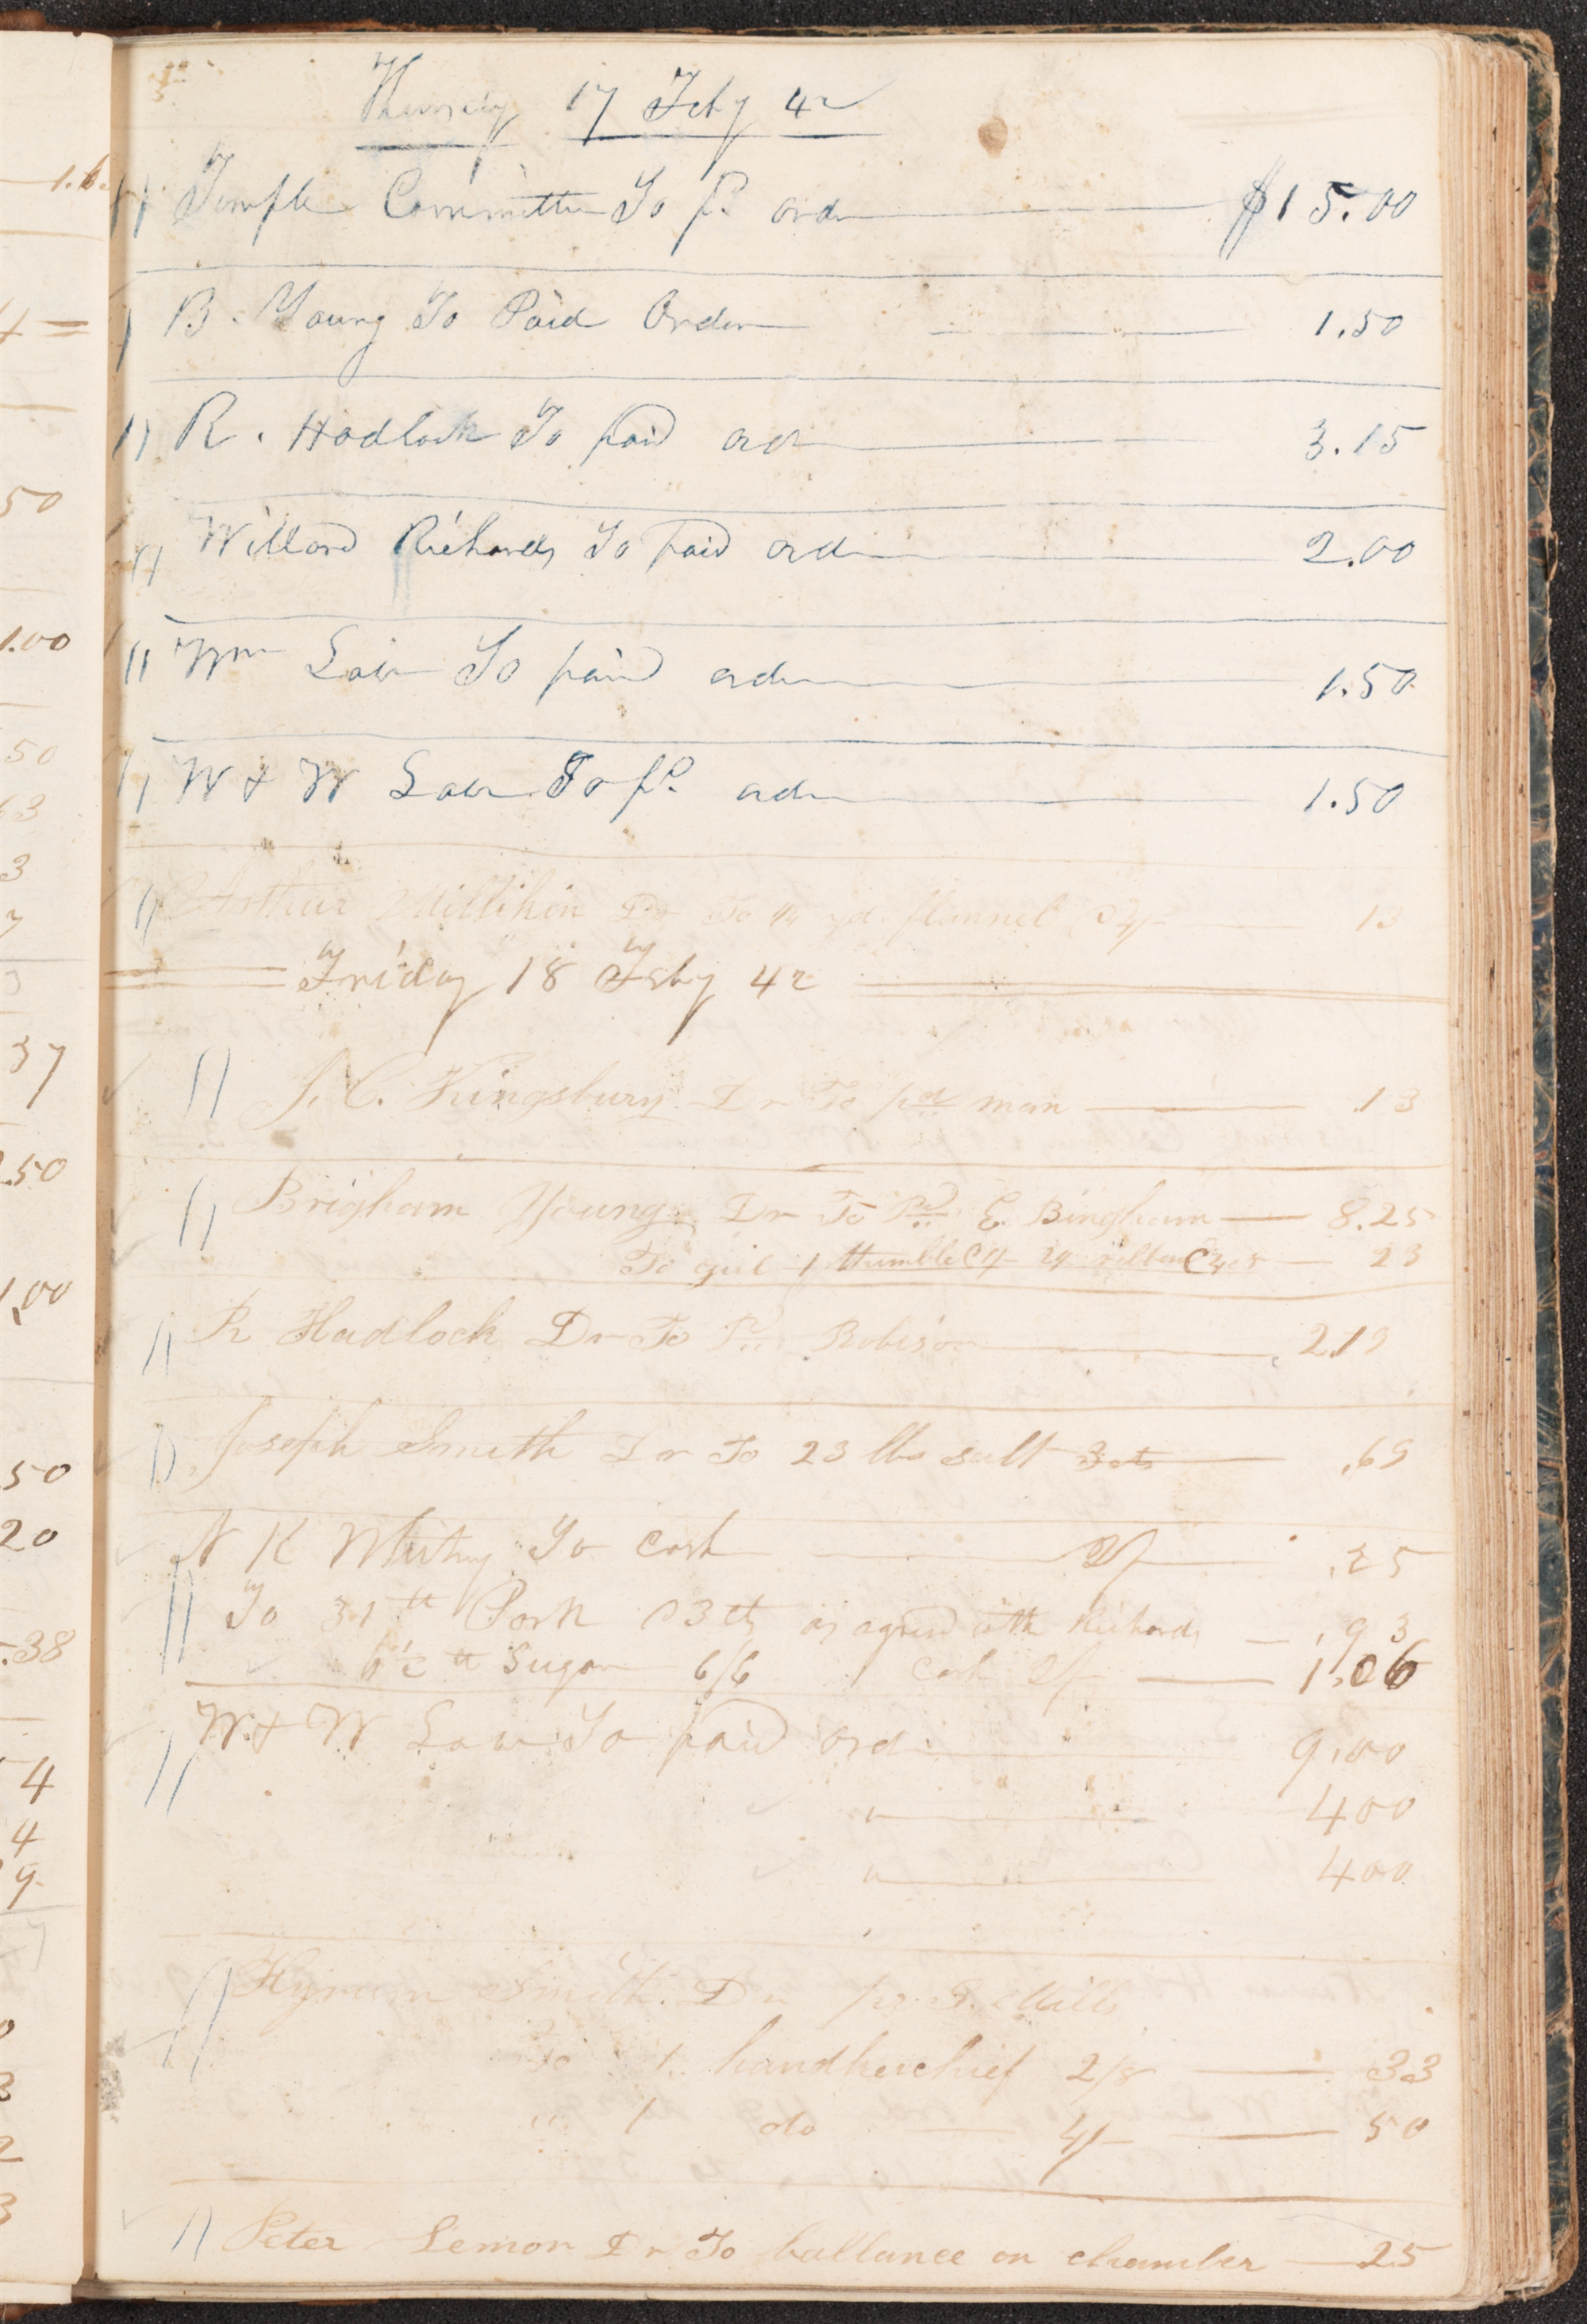 Thursday 17 Feby 42
Temple Committee To pd order $15.00
B. Young To Paid Order 1.50
R. Hadlock To paid ord 3.15
Willard Richards To paid ord 2.00
Wm Law To paid order 1.50
W & W Law To pd order 1.50
Arthur Millikin Dr To 1/4 yd. flannel @ 4/- 13
Friday 18 Feby 42
J. C. Kingsbury Dr To pd man .13
Brigham Young Dr To Pd E. Bingham 8.25
To girl 1 thimble ribbon 23
R Hadlock Dr To Pd Robison 2.19
Joseph Smith Dr To 23 lbs salt 3 cts .69
N K Whitney To Cash 2/- .25
To 31 lb Pork @ 3 cts as agreed with Richards .93
6 1/2 lb Sugar 6/6 Cash 2/- 1.06
W & W Law To paid ord 9.00
" 400
" 400
Hyrum Smith Dr pr. G. Mills
To 1 handkerchief 2/8 33
" 1 do 4/- 50
Peter Lemon Dr To ballance on chamber 25
1.6
4 =
50
1.00
50
63
3
37
.50
1.00
50
20
.38
4
4
9